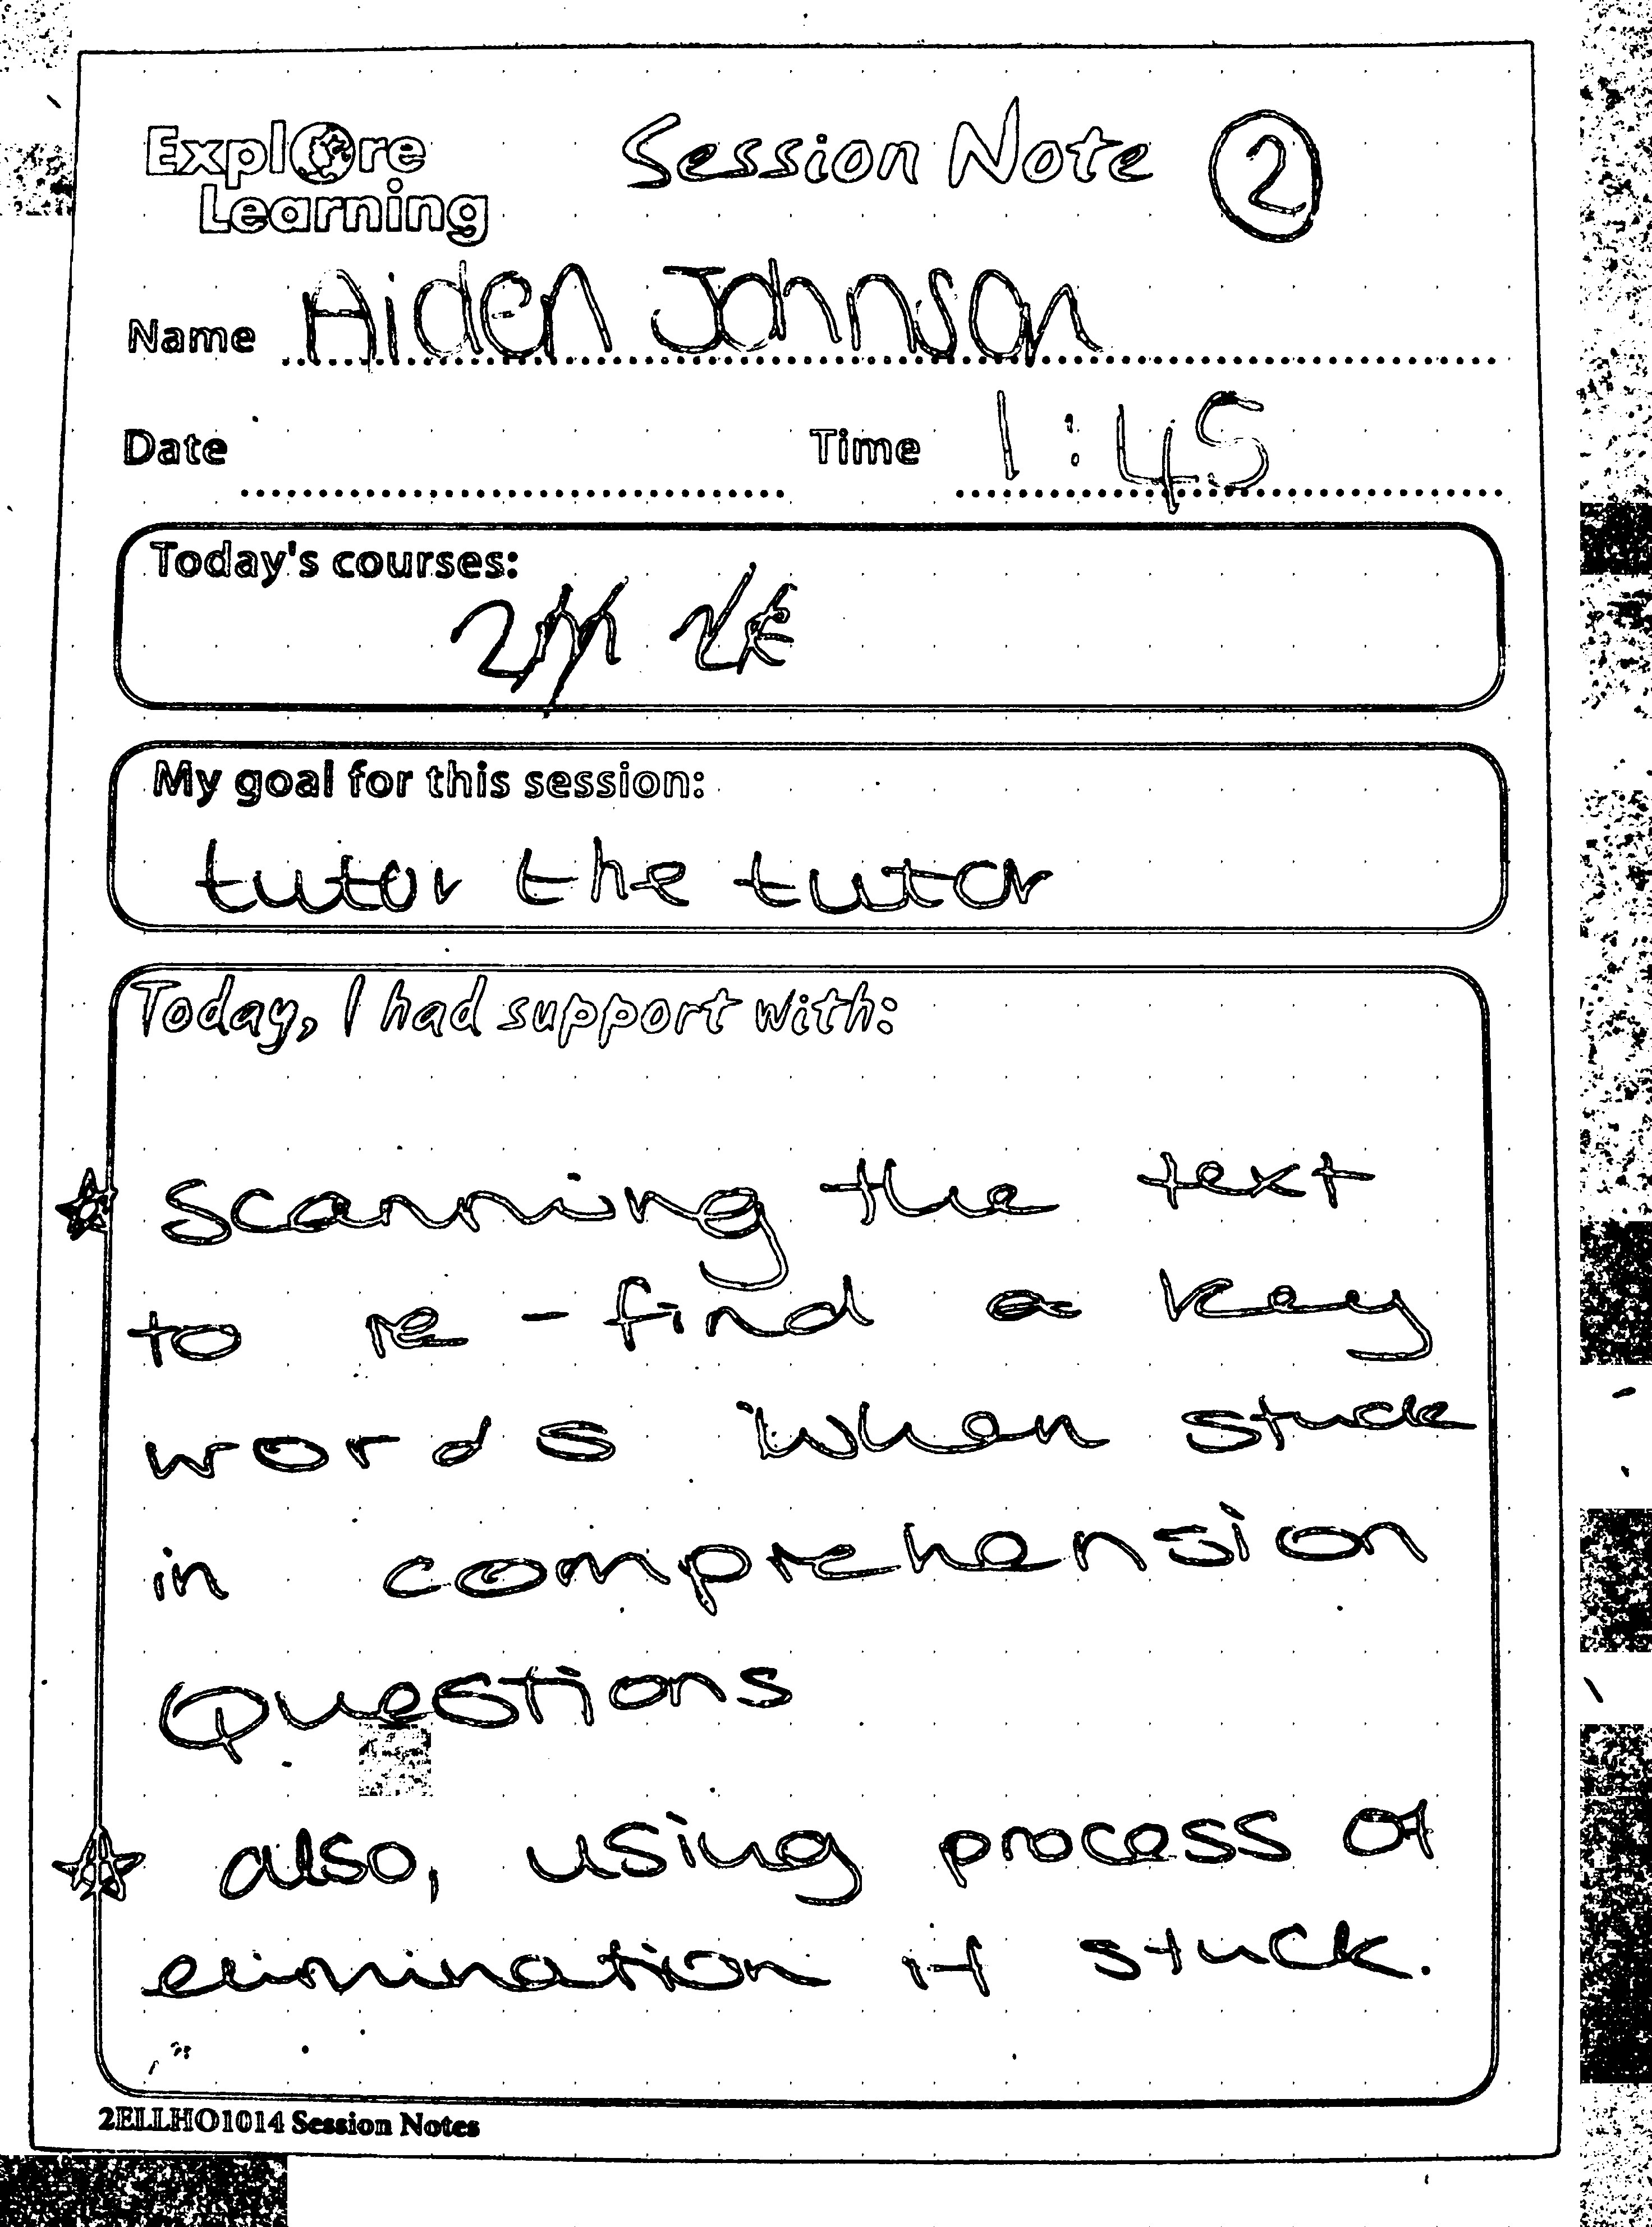 Explore Learning
Session Note 2
Name Aiden Johnson
Date
Time 1:45
Today's courses:
My goal for this session:
tutor the tutor
Today, I had support with:
Scanning the text
to re-find a key
words when stuck
in comprehension
Questions
also, using process of
elimination if stuck.
2ELLHO1014 Session Notes